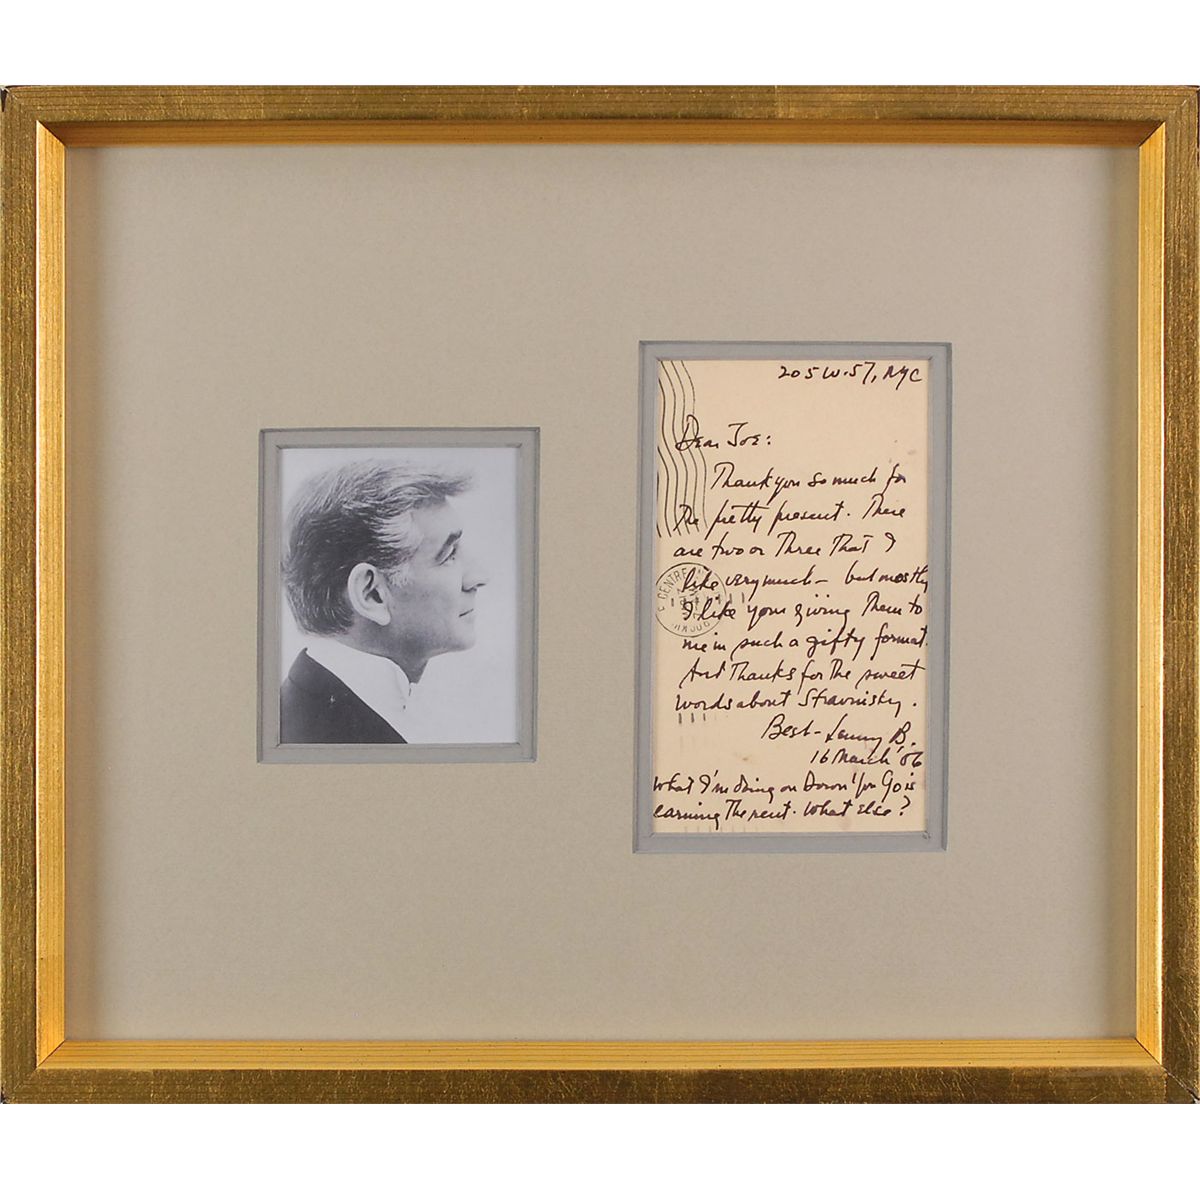 205 W. 57, NYC
Dear Joe:
Thank you so much for
the pretty present. There
are two or three that I
like very much - but mostly
I like your giving them to
me in such a gifty format.
And thanks for the sweet
words about Stravinsky.
Best - Lenny B.
16 March '66
What I'm doing on Doron'
is
earning the rent. What else?
CENTRE